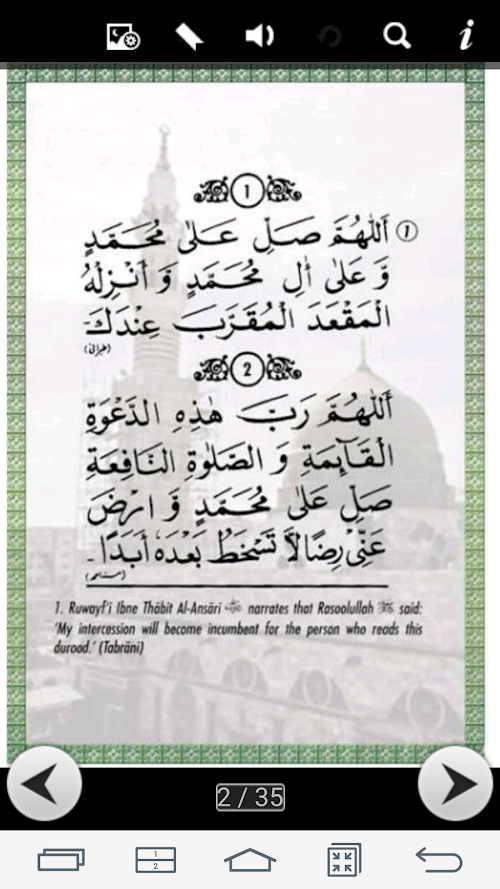 1
اَللّٰهُمَّ صَلِّ عَلٰى مُحَمَّدٍ ①
وَّ عَلٰى اٰلِ مُحَمَّدٍ وَّ اَنْزِلْهُ
الْمَقْعَدَ الْمُقَرَّبَ عِنْدَكَ
(طبرانی)
2
اَللّٰهُمَّ رَبَّ هٰذِهِ الدَّعْوَةِ
الْقَآئِمَةِ وَ الصَّلٰوةِ النَّافِعَةِ
صَلِّ عَلٰى مُحَمَّدٍ وَّ ارْضَ
عَنِّىْ رِضًا لَّا تَسْخَطُ بَعْدَهٗ اَبَدًا۔
(مسند احمد)
1. Ruwayf'i Ibne Thābit Al-Ansāri narrates that Rasoolullah ﷺ said:
'My intercession will become incumbent for the person who reads this
durood.' (Tabrāni)
2 / 35
1
2